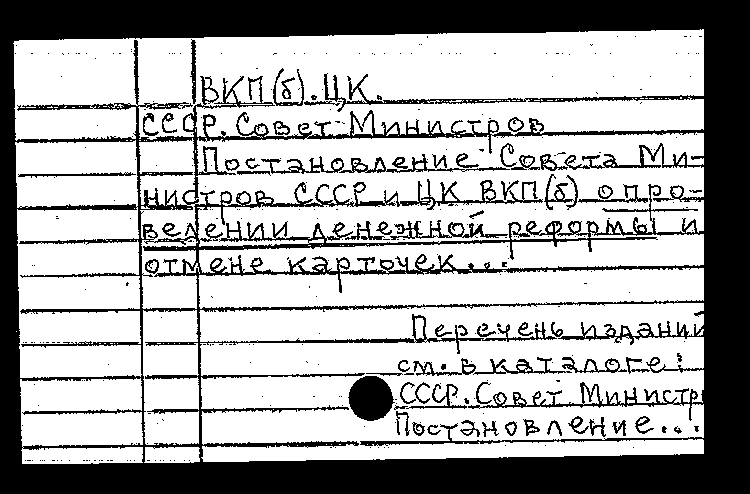 ВКП(б). ЦК.
СССР. Совет Министров
Постановление Совета Ми-
нистров СССР и ЦК ВКП(б) о про-
ведении денежной реформы и
отмене карточек...
Перечень изданий
см. в каталоге:
СССР. Совет Министр
Постановление...